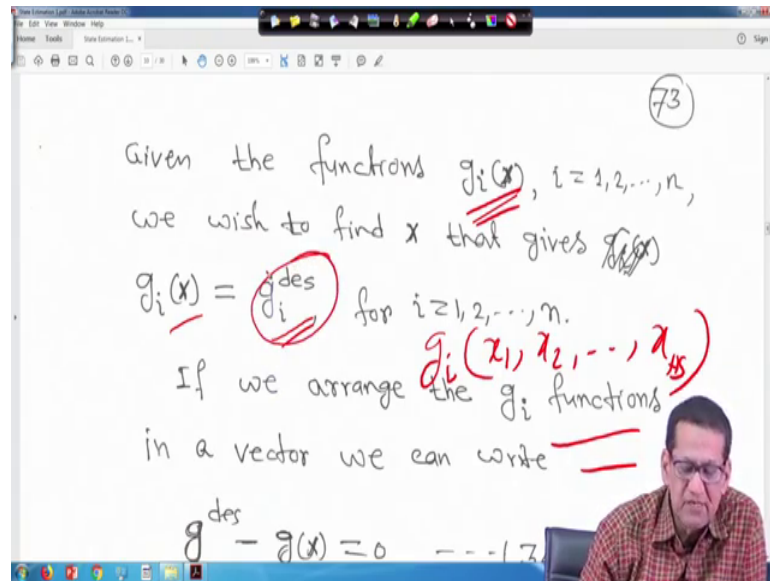 State Estimation 1.pdf - Adobe Acrobat Reader DC
File Edit View Window Help
Home Tools State Estimation 1... x
Sign
73
Given the functions gᵢ(x), i = 1, 2, ..., n,
we wish to find x that gives
gᵢ(x) = gᵢ^des for i = 1, 2, ..., n.
gᵢ(x₁, x₂, ..., x
If we arrange the gᵢ functions
in a vector we can write
g^des - g(x) = 0 ---(3